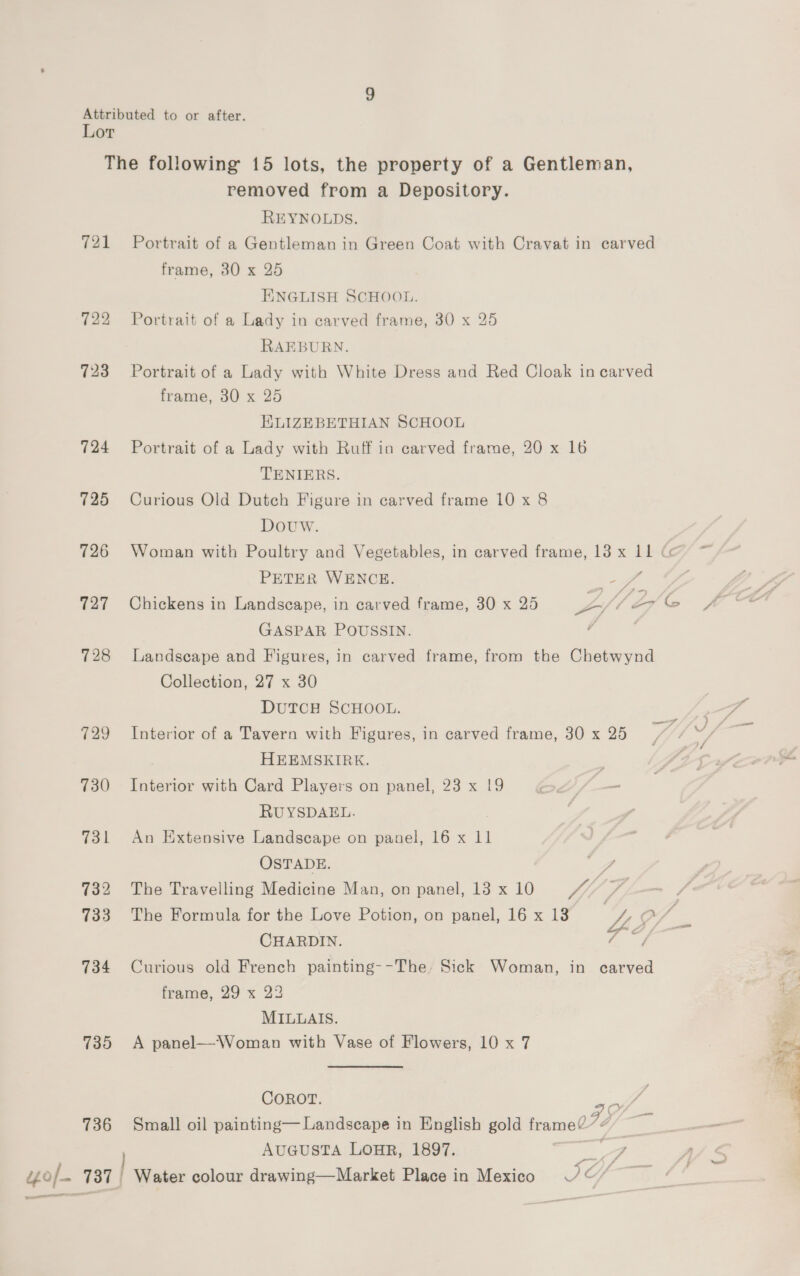 9
Attributed to or after.
Lot
The following 15 lots, the property of a Gentleman,
removed from a Depository.
REYNOLDS.
721 Portrait of a Gentleman in Green Coat with Cravat in carved
frame, 30 x 25
ENGLISH SCHOOL.
722 Portrait of a Lady in carved frame, 30 x 25
RAEBURN.
723 Portrait of a Lady with White Dress and Red Cloak in carved
frame, 30 x 25
ELIZEBETHIAN SCHOOL
724 Portrait of a Lady with Ruff in carved frame, 20 x 16
TENIERS.
725 Curious Old Dutch Figure in carved frame 10 x 8
DOUW.
726 Woman with Poultry and Vegetables, in carved frame, 13 x 11
PETER WENCE.
727 Chickens in Landscape, in carved frame, 30 x 25
GASPAR POUSSIN.
728 Landscape and Figures, in carved frame, from the Chetwynd
Collection, 27 x 30
DUTCH SCHOOL.
729 Interior of a Tavern with Figures, in carved frame, 30 x 25
HEEMSKIRK.
730 Interior with Card Players on panel, 23 x 19
RUYSDAEL.
731 An Extensive Landscape on panel, 16 x 11
OSTADE.
732 The Travelling Medicine Man, on panel, 13 x 10
733 The Formula for the Love Potion, on panel, 16 x 13
CHARDIN.
734 Curious old French painting--The Sick Woman, in carved
frame, 29 x 23
MILLAIS.
735 A panel—Woman with Vase of Flowers, 10 x 7
COROT.
736 Small oil painting—Landscape in English gold frame
AUGUSTA LOHR, 1897.
40/- 737 Water colour drawing—Market Place in Mexico